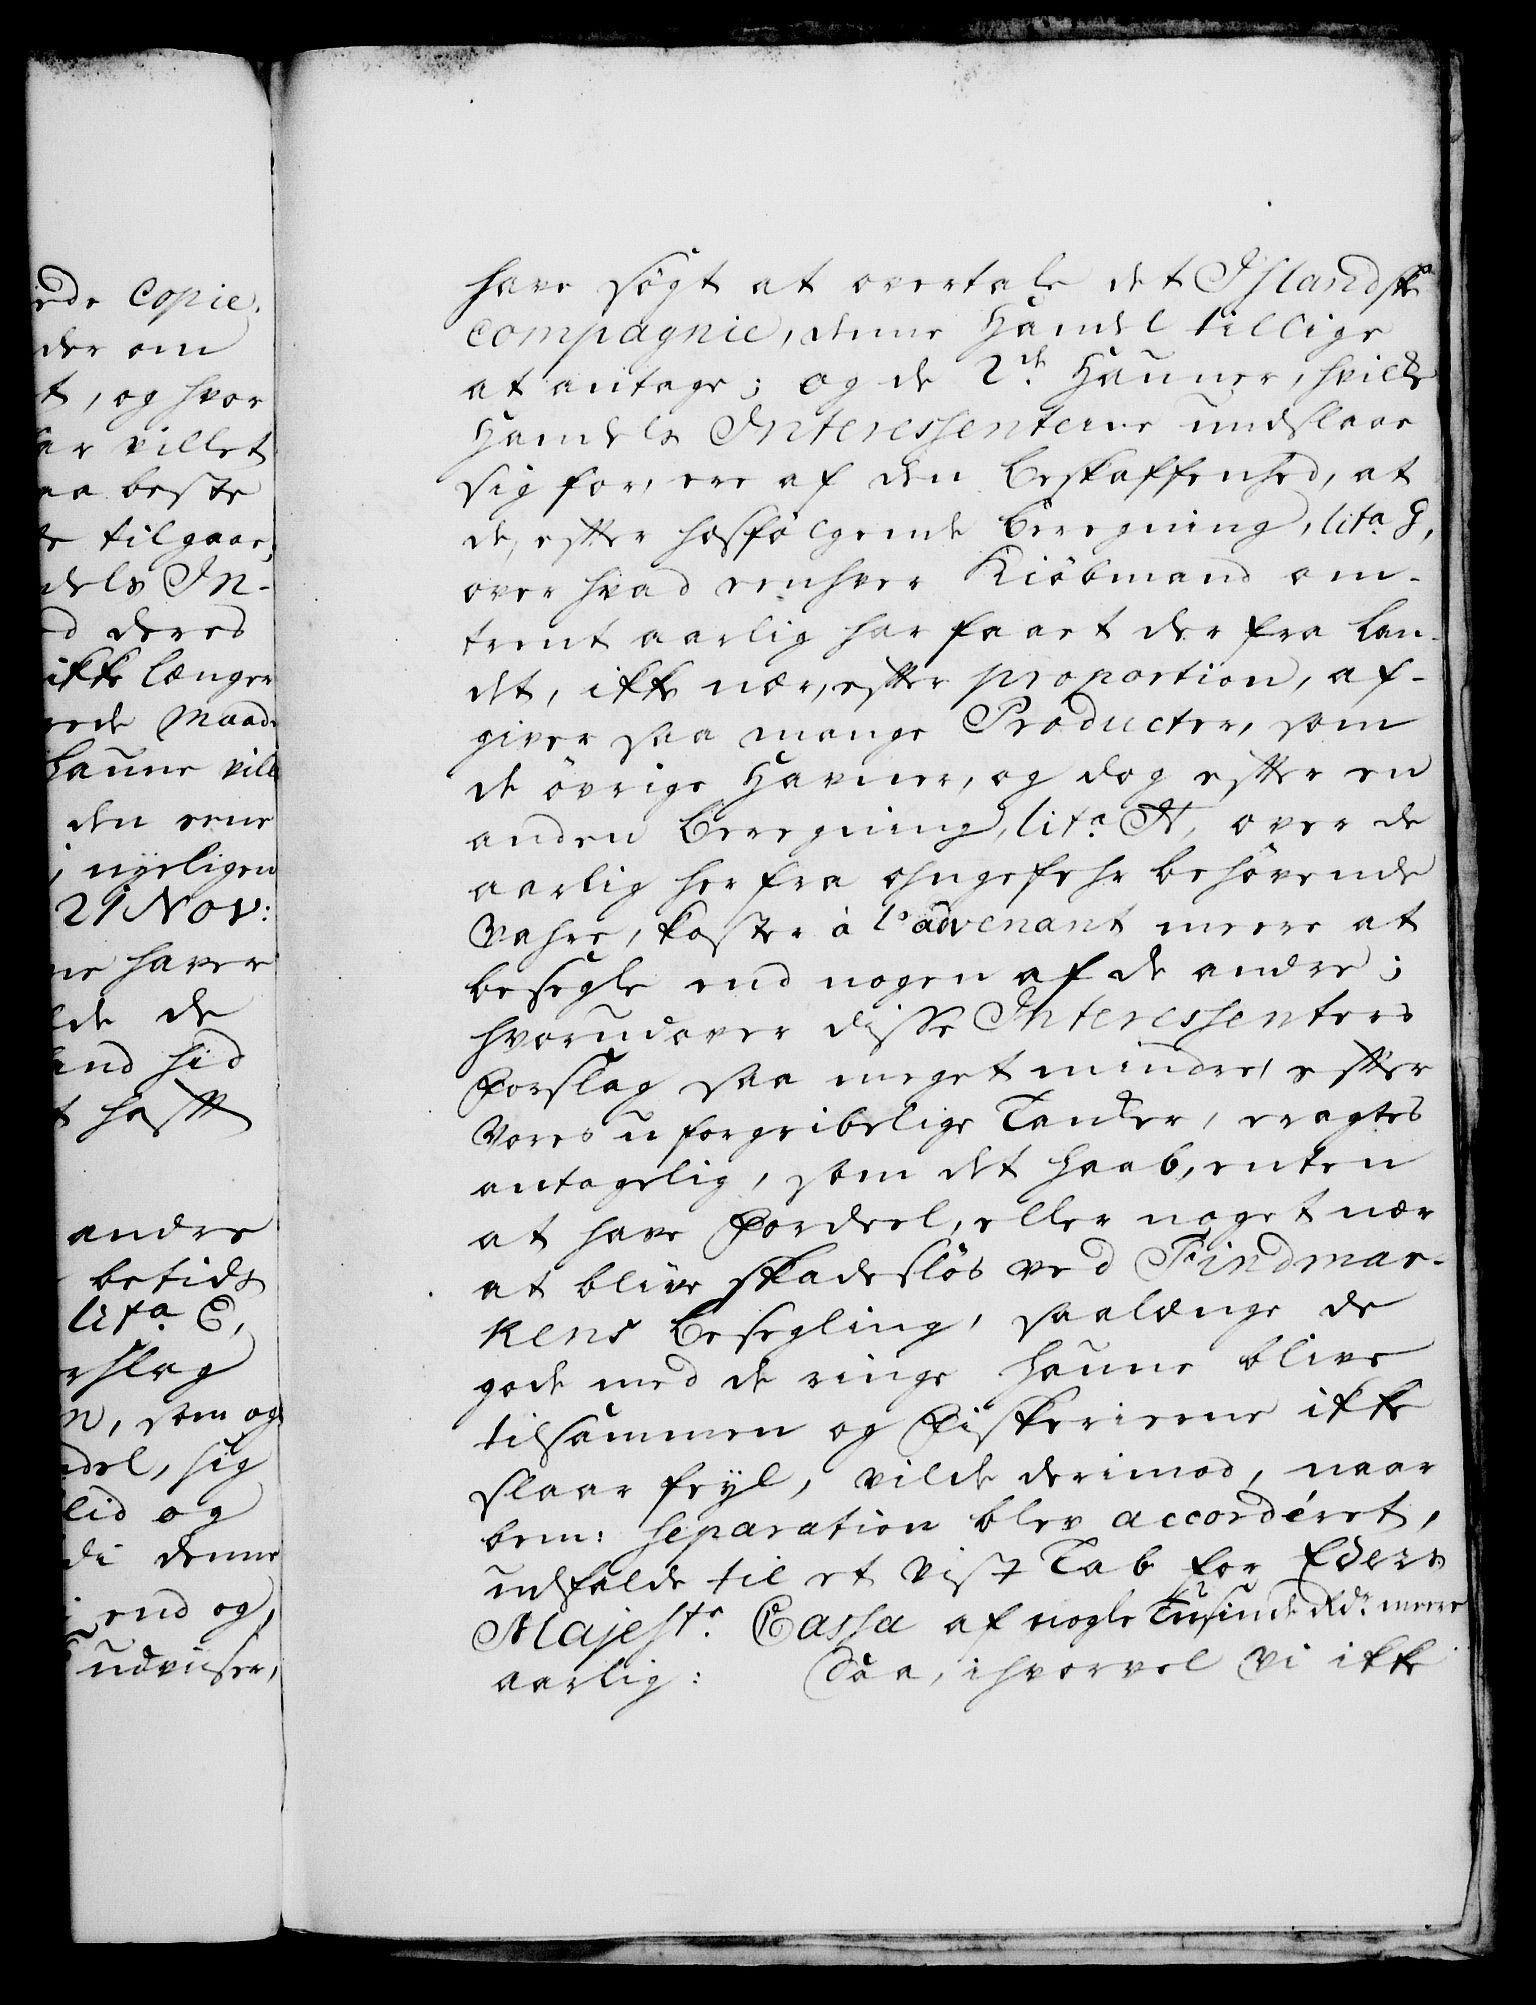 ede Copie,
der om
t, og hvor
ar villet
aa beste
te tilgaar,
dels In-
ed deres
ikke længer
rede Maade
haune vil
den eene
i nyeligen
21 Nov:
ne haver
lde de
and hid
t hafft
andre
betids
lita E,
rslag
n, som og
ndel, sig
lid og
di denne
end og,
udviiser,
have søgt at overtale det Islandske
Compagnie, denne Handel tillige
at antage; og de 2de Hauner, hvilke
Handels Interessenterne undslaar
sig for, ere af den beskaffenhed, at
de, efter hosfølgende beregning, lita G,
over hvad eenhver Kiøbmand om-
trent aarlig har faaet der fra Lan-
det, ikke nær, efter proportion, af-
giver saa mange Producter, som
de øvrige Havner, og dog efter en
anden beregning, lita H, over de
aarlig her fra ohngefehr behøvende
Vahre, koster à l'advenant meere at
besegle end nogen af de andre;
hvorudover disse Interessenters
Forslag saa meget mindre, efter
Vores uforgribelige Tanker, eragtes
antagelig, som det haab, enten
at have Fordeel, eller noget nær
at blive skadesløs ved Findmar-
kens besegling, saalænge de
gode med de ringe haune blive
tilsammen og Fiskerierne ikke
slaar feyl, vilde derimod, naar
bem: separation blev accordéret,
udfalde til et vist Tab for Eders
Majestr. Cassa af nogle Tusinde Rdr. meere
aarlig: Saa, ihvorvel Vi ikke